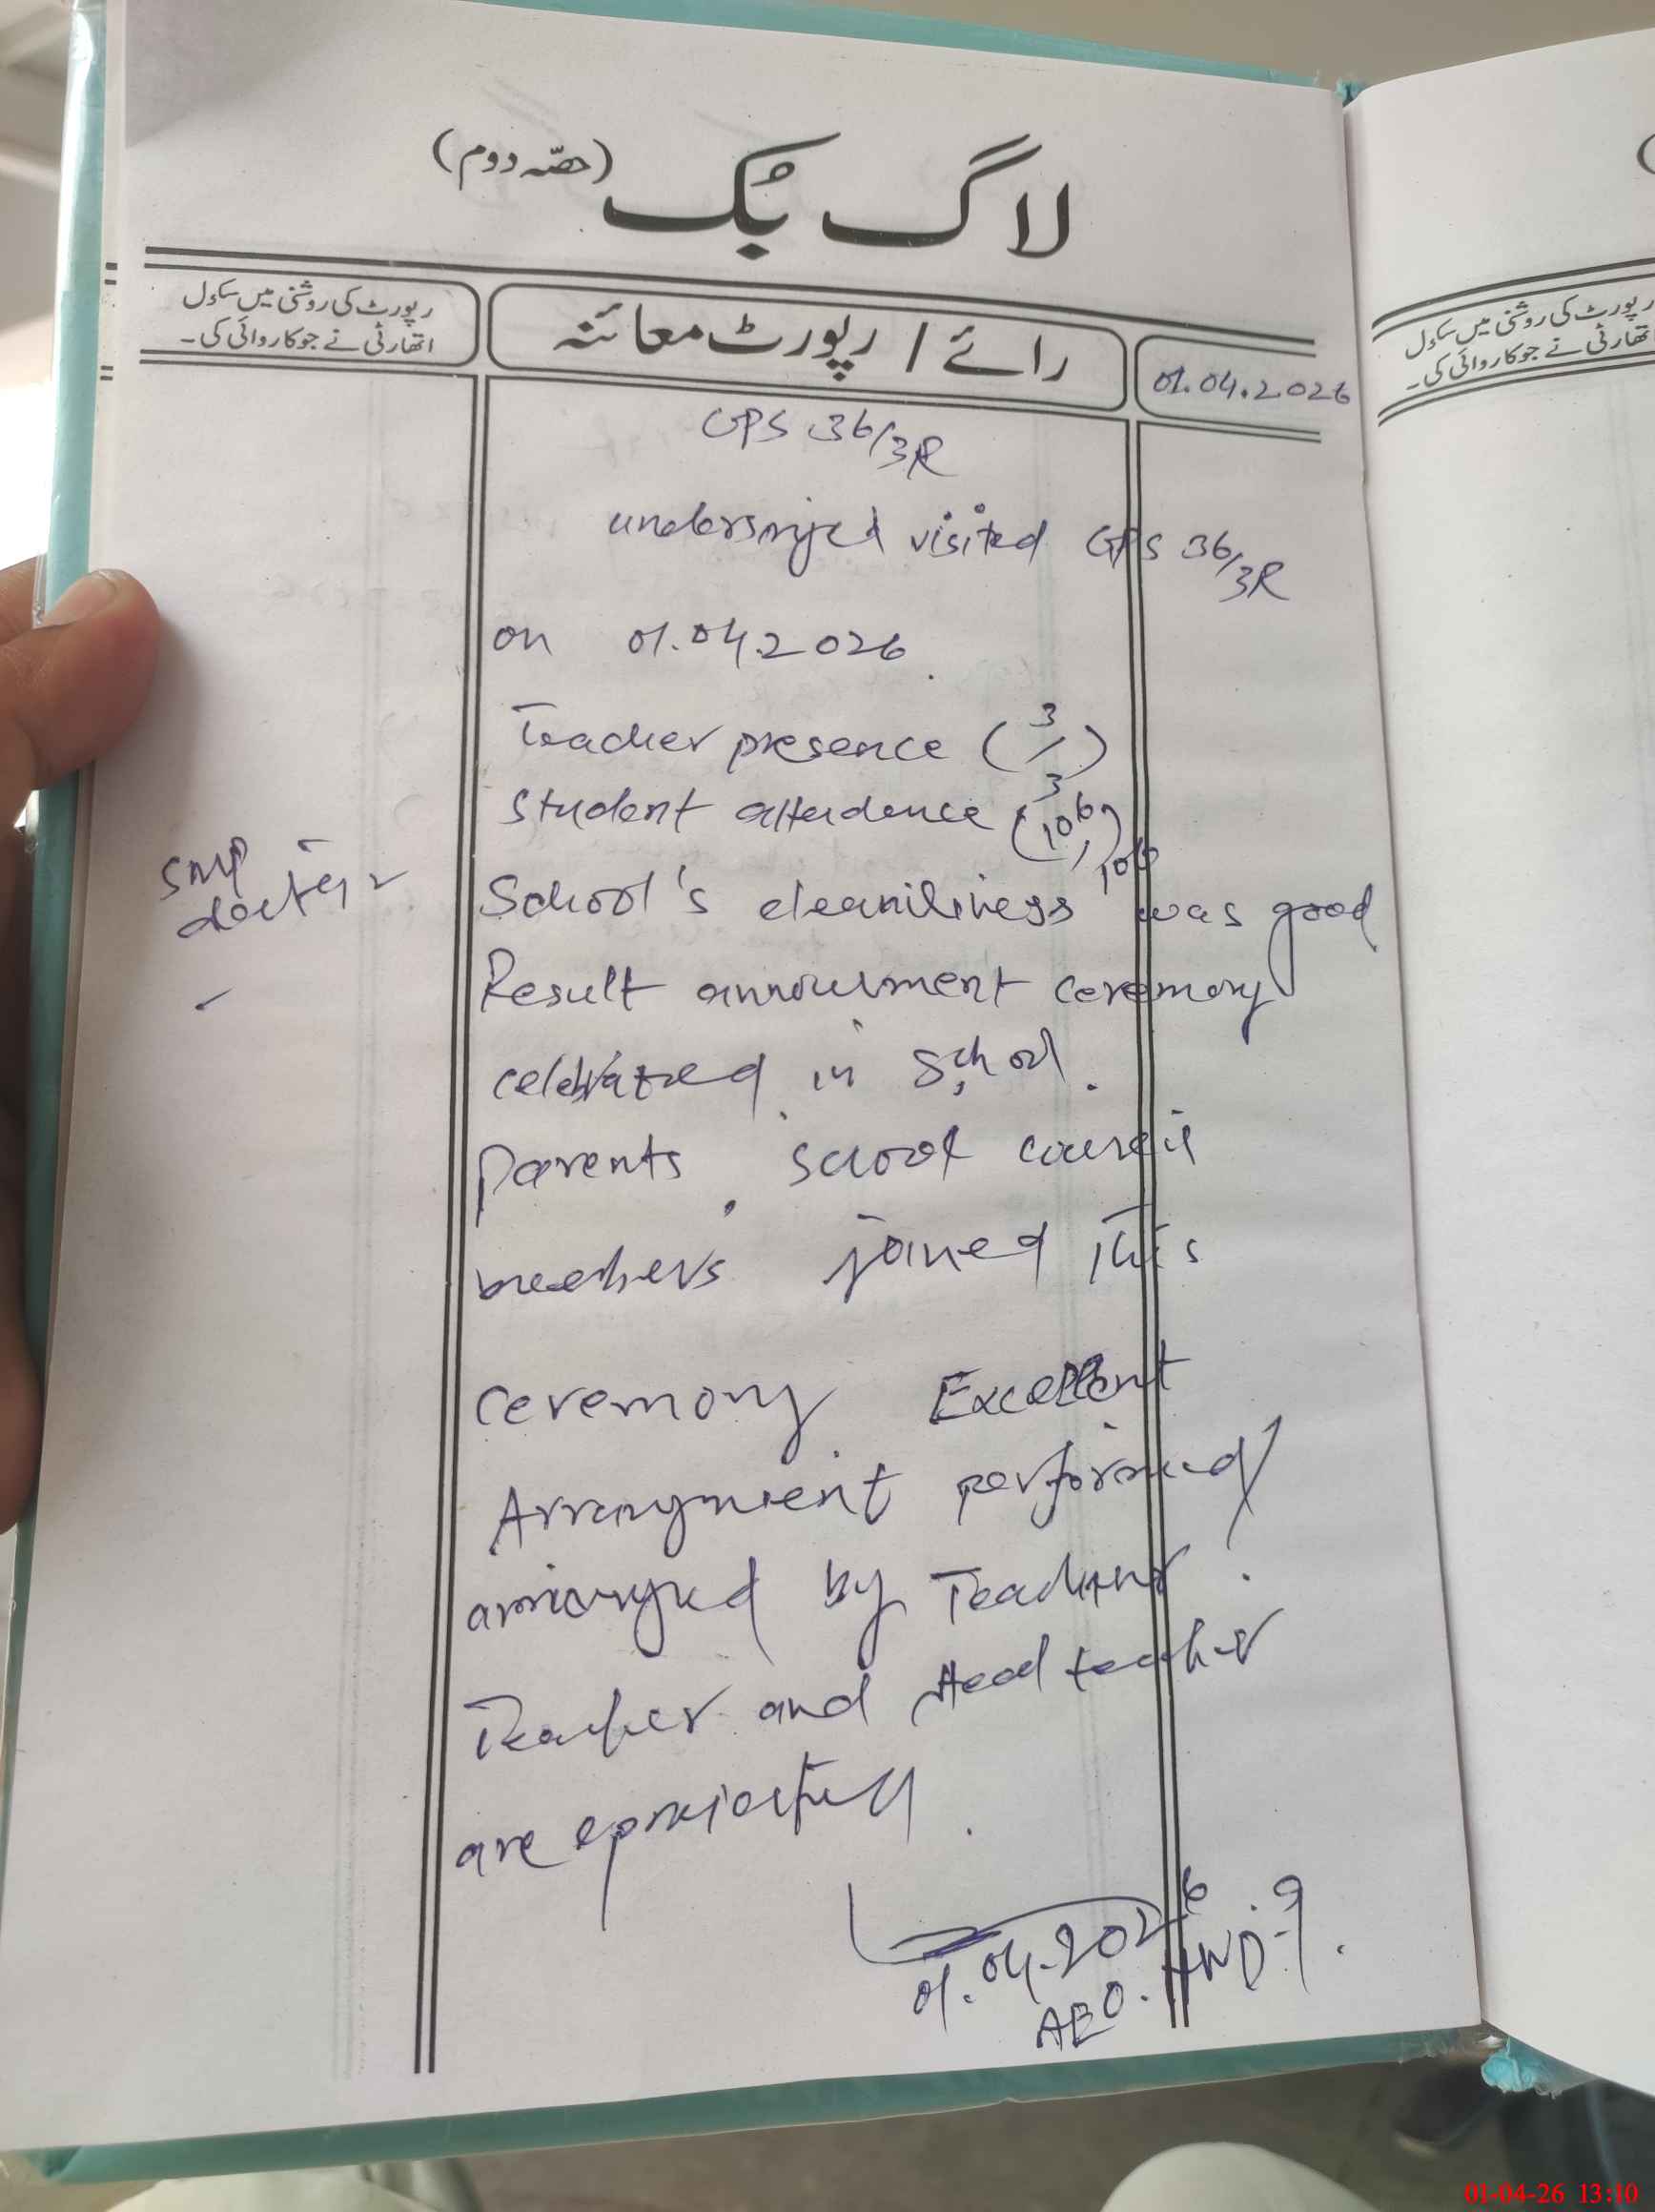 لاگ بُک (حصّہ دوم)
رپورٹ کی روشنی میں سکول
اتھارٹی نے جو کاروائی کی۔
رائے / رپورٹ معائنہ
01.04.2026
GPS 36/3R
undersnjed visited GPS 36/3R
on 01.04.2026.
Teacher presence (3/3)
Student attendence (106/106)
School's cleaniliness was good
Result annourment ceremony
celebrated in School.
parents, school council
joined this
ceremony Excellent
Arrangment performed/
arranged by Teacher.
Teacher and Head teacher
are
01.04.2026
AEO. HND-9.
SMP
رپورٹ کی روشنی میں سکول
اتھارٹی نے جو کاروائی کی۔
01-04-26 13:10